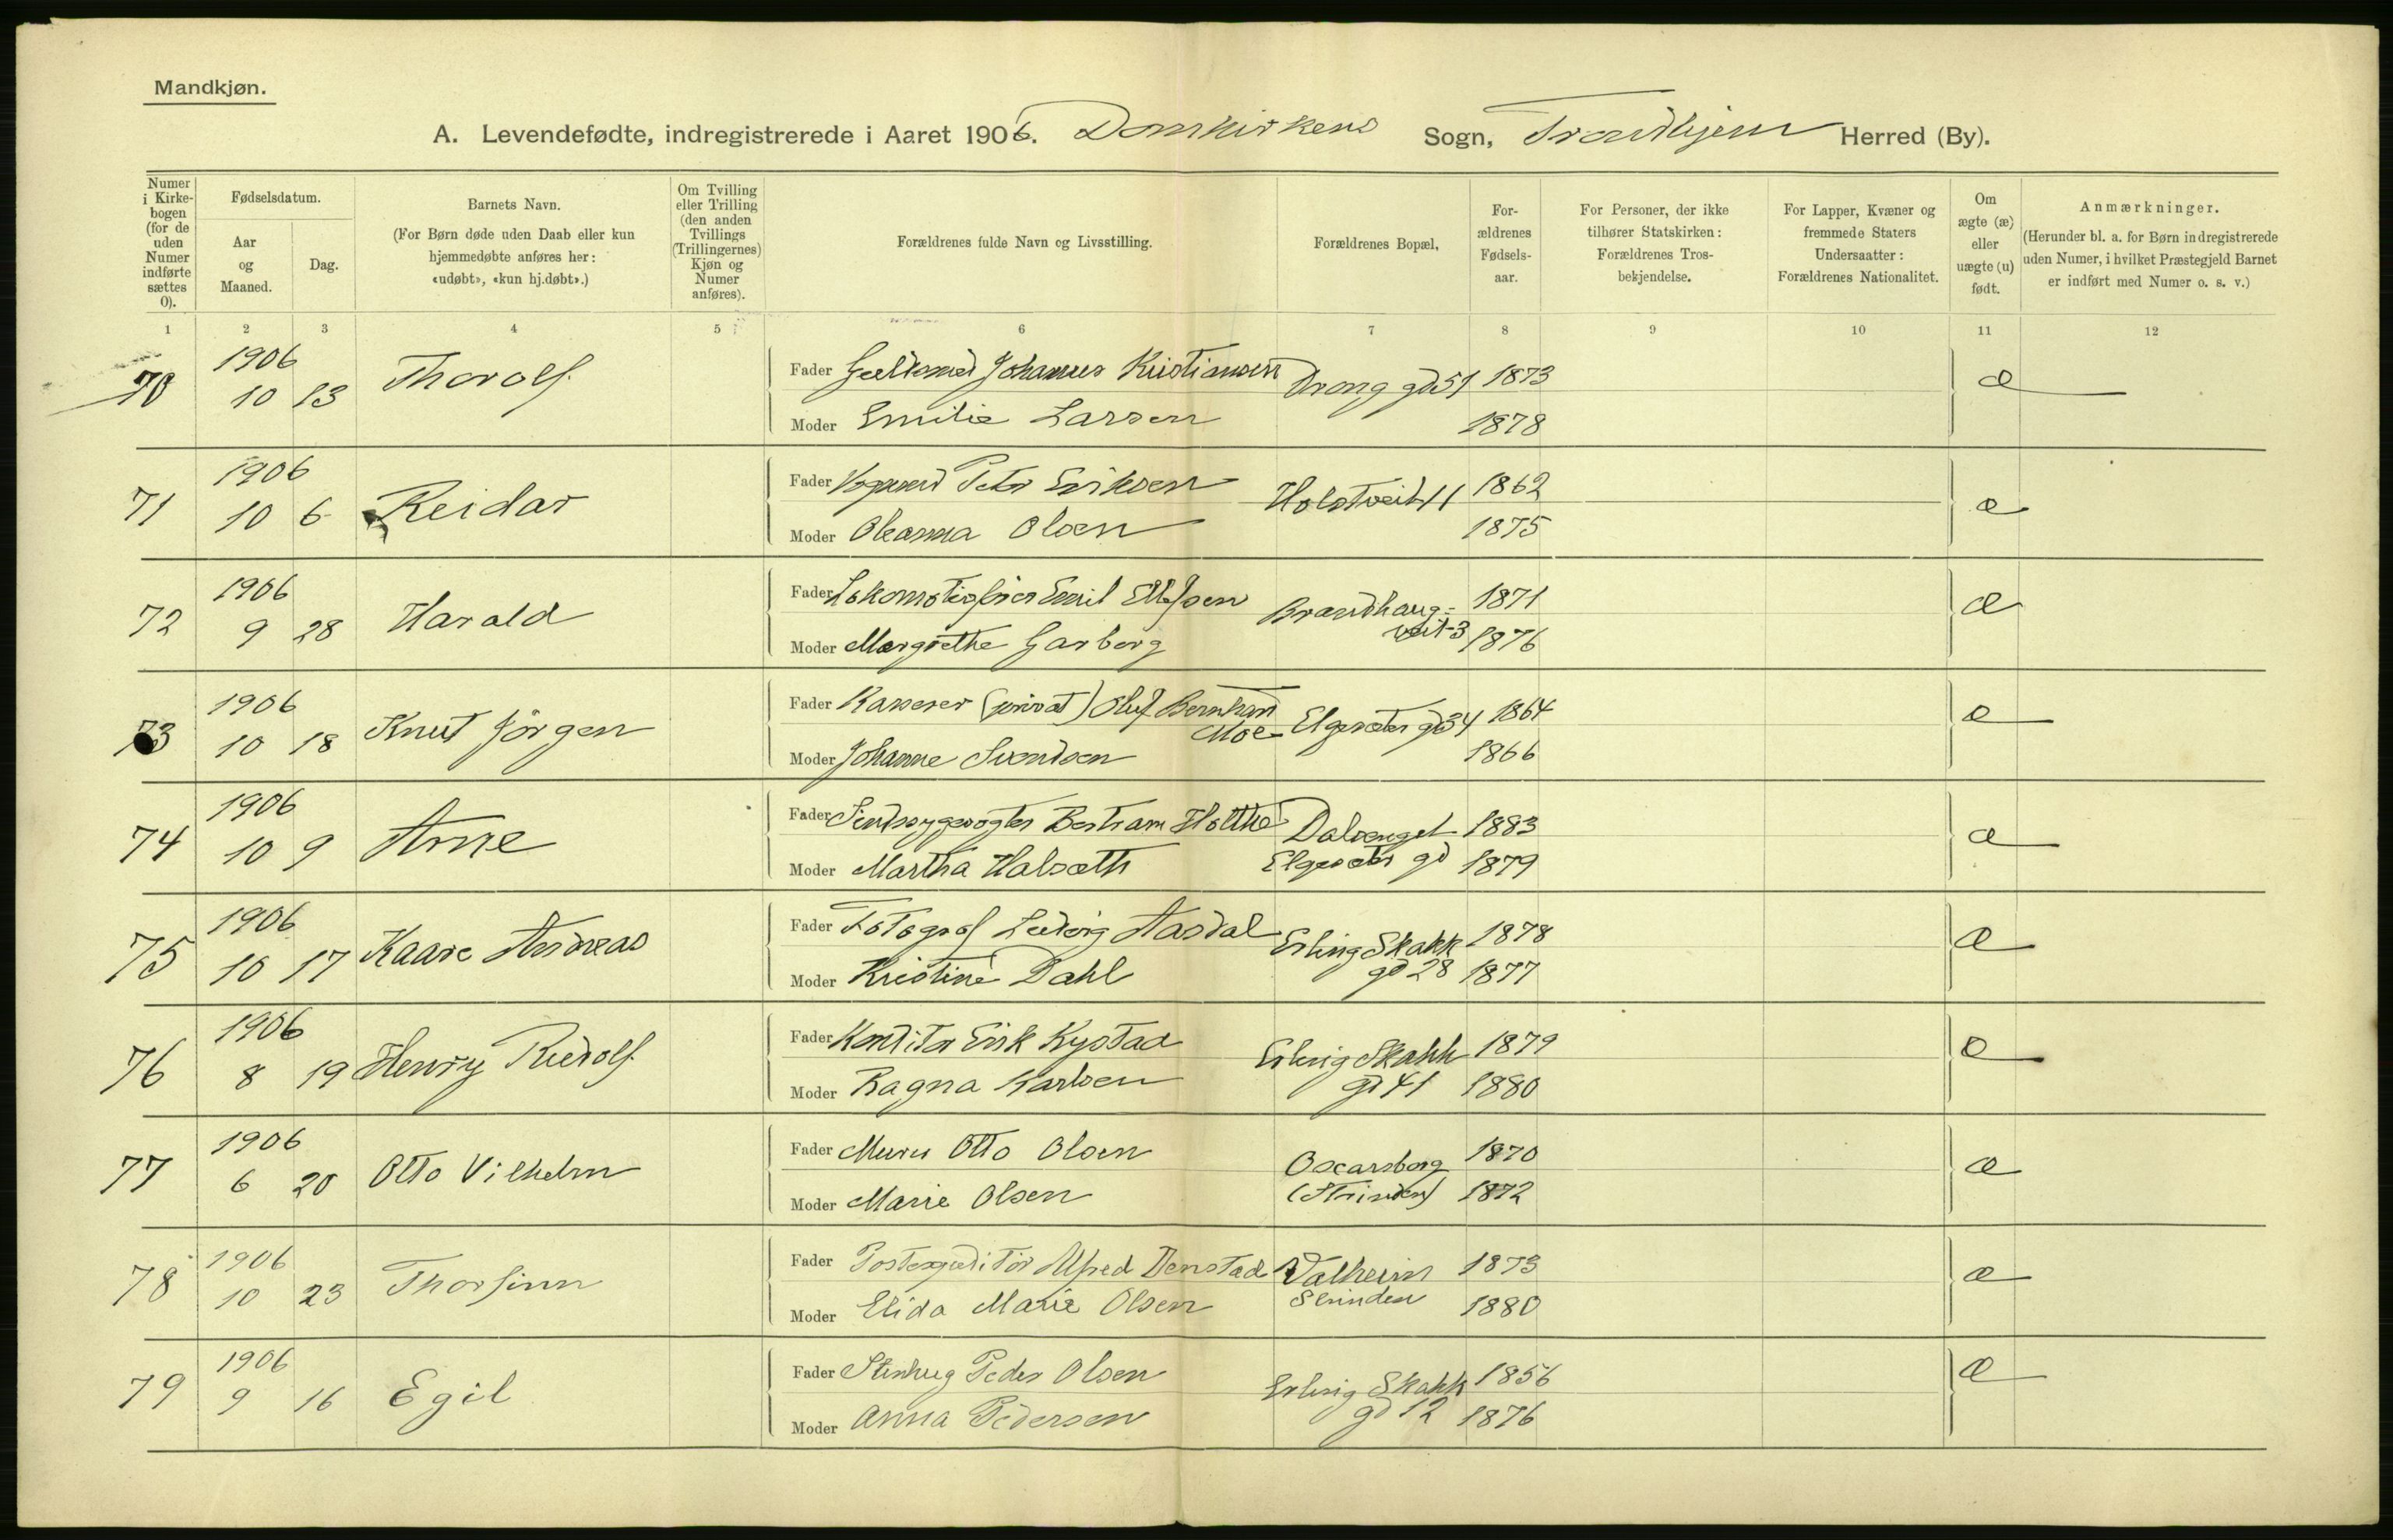 Mandkjøn.
A. Levendefødte, indregistrerede i Aaret 1906. Domkirkens Sogn, Trondhjem Herred (By).
Numer i Kirke-bogen (for de uden Numer indførte sættes 0).
Fødselsdatum.
Aar og Maaned.
Dag.
Barnets Navn.
(For Børn døde uden Daab eller kun hjemmedøbte anføres her: «udøbt», «kun hj.døbt».)
Om Tvilling eller Trilling (den anden Tvillings (Trillingernes) Kjøn og Numer anføres).
Forældrenes fulde Navn og Livsstilling.
Forældrenes Bopæl,
For-ældrenes Fødsels-aar.
For Personer, der ikke tilhører Statskirken: Forældrenes Tros-bekjendelse.
For Lapper, Kvæner og fremmede Staters Undersaatter: Forældrenes Nationalitet.
Om ægte (æ) eller uægte (u) født.
Anmærkninger.
(Herunder bl. a. for Børn indregistrerede uden Numer, i hvilket Præstegjeld Barnet er indført med Numer o. s. v.)
1 2 3 4 5 6 7 8 9 10 11 12
70 1906 10 13 Thorolf
Fader Guldsmed Johannes Kristiansen Drong gd 51 1873 æ
Moder Emilie Larsen 1878
71 1906 10 6 Reidar
Fader Peter Eriksen Holstveit 11 1862 æ
Moder Oleanna Olsen 1875
72 1906 9 28 Harald
Fader Lokomotivfører Emil Ellefsen Brandhaug- 1871 æ
veit 3
Moder Margrethe Garberg 1876
73 1906 10 18 Knut Jørgen
Fader Kasserer (privat) Oluf Bernhard Moe Elgesæter gd 34 1864 æ
Moder Johanne Svendsen 1866
74 1906 10 9 Arne
Fader Sindssygevogter Bertram Holthe Dalsenget 1883 æ
Moder Martha Halseth Elgesæter gd 1879
75 1906 10 17 Kaare Andreas
Fader Fotograf Ludvig Aasdal Erling Skakk 1878 æ
gd 28
Moder Kristine Dahl 1877
76 1906 8 19 Henry Rudolf
Fader Konditor Erik Kystad Erling Skakk 1879 æ
gd 41
Moder Ragna Karlsen 1880
77 1906 6 20 Otto Vilhelm
Fader Murer Otto Olsen Oscarsborg 1870 æ
Moder Marie Olsen (Strinden) 1872
78 1906 10 23 Thorfinn
Fader Postexpeditør Alfred Denstad Valheim 1873 æ
Moder Elida Marie Olsen Strinden 1880
79 1906 9 16 Egil
Fader Stenhug Peder Olsen Erling Skakk 1856 æ
gd 12
Moder Anna Pedersen 1876